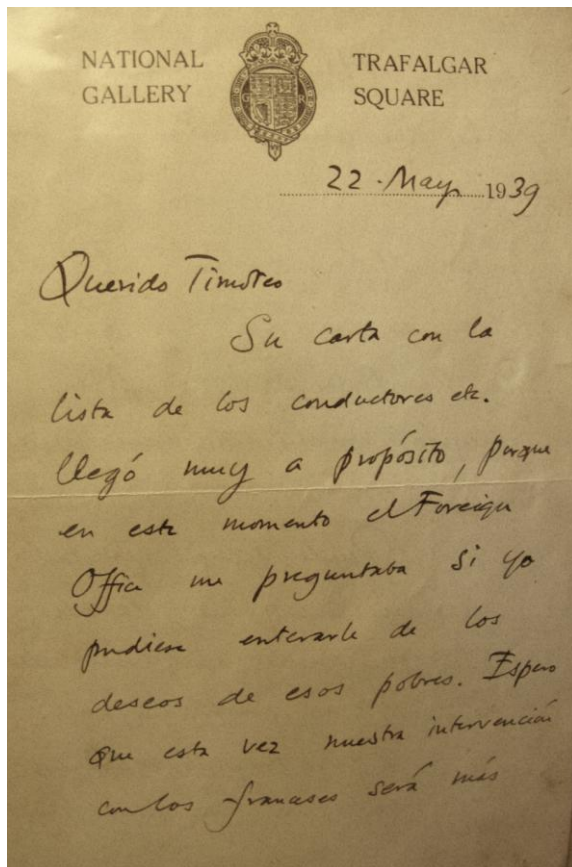 NATIONAL GALLERY
TRAFALGAR SQUARE
G R
22 · May 1939
Querido Timoteo
Su carta con la
lista de los conductores etc.
llegó muy a propósito, porque
en este momento el Foreign
Office me preguntaba si yo
pudiese enterarle de los
deseos de esos pobres. Espero
que esta vez nuestra intervención
con los franceses será más